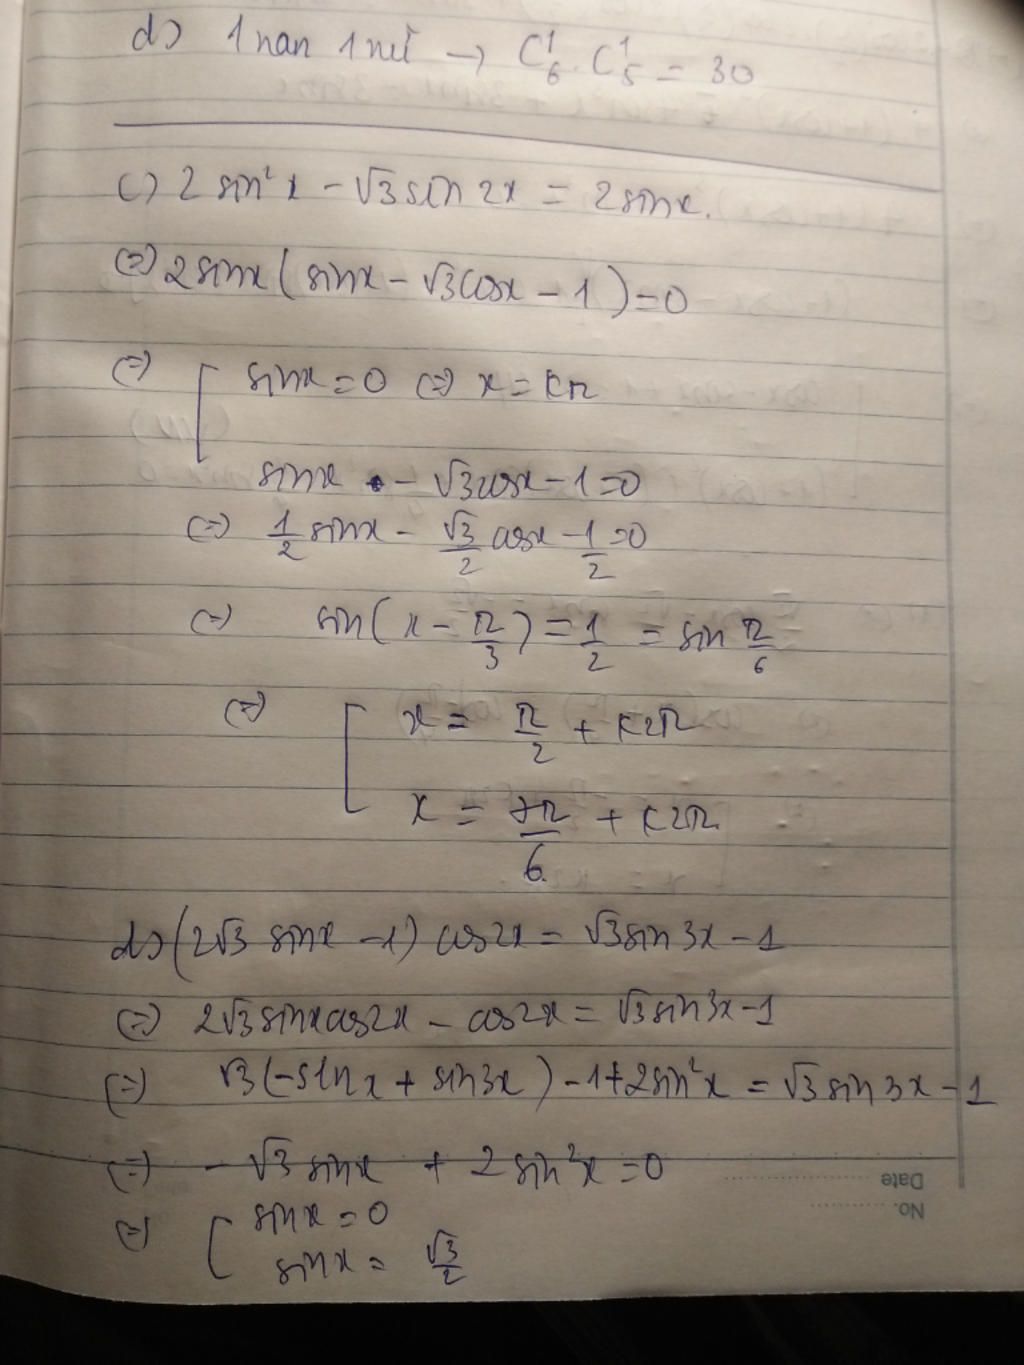 d) 1 nam 1 nữ → C¹₆ . C¹₅ = 30
c) 2 sin²x - √3 sin 2x = 2 sinx.
(=) 2 sinx ( sinx - √3 cosx - 1 ) = 0
(=) [ sinx = 0 (=) x = kπ
sinx - √3 cosx - 1 = 0
(=) 1/2 sinx - √3/2 cosx - 1/2 = 0
(=) sin( x - π/3 ) = 1/2 = sin π/6
(=) [ x = π/2 + k2π
x = 7π/6 + k2π
d) (2√3 sinx - 1) cos2x = √3 sin 3x - 1
(=) 2√3 sinx cos2x - cos2x = √3 sin3x - 1
(=) √3 (-sinx + sin3x) - 1 + 2sin²x = √3 sin 3x - 1
(=) - √3 sinx + 2 sin²x = 0
Date
(=) [ sinx = 0
No.
sinx = √3/2